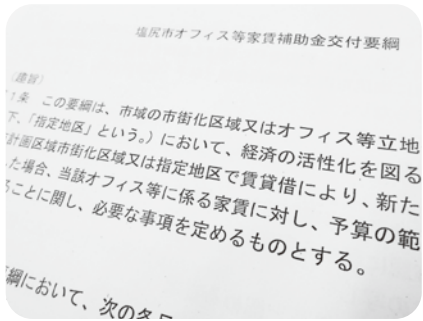 塩尻市オフィス等家賃補助金交付要綱
(趣旨)
1条 この要綱は、市域の市街化区域又はオフィス等立地
下、「指定地区」という。)において、経済の活性化を図る
計画区域市街化区域又は指定地区で賃貸借により、新た
た場合、当該オフィス等に係る家賃に対し、予算の範
ることに関し、必要な事項を定めるものとする。
綱において、次の各